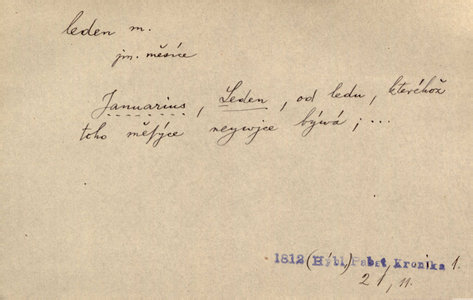 leden m.
jm. měsíce
Januarius, Leden, od ledu, kteréhož
toho měsýce neywjce býwá; ...
1812 (Hýbl) Pabst, Kronika 1.
21, 11.